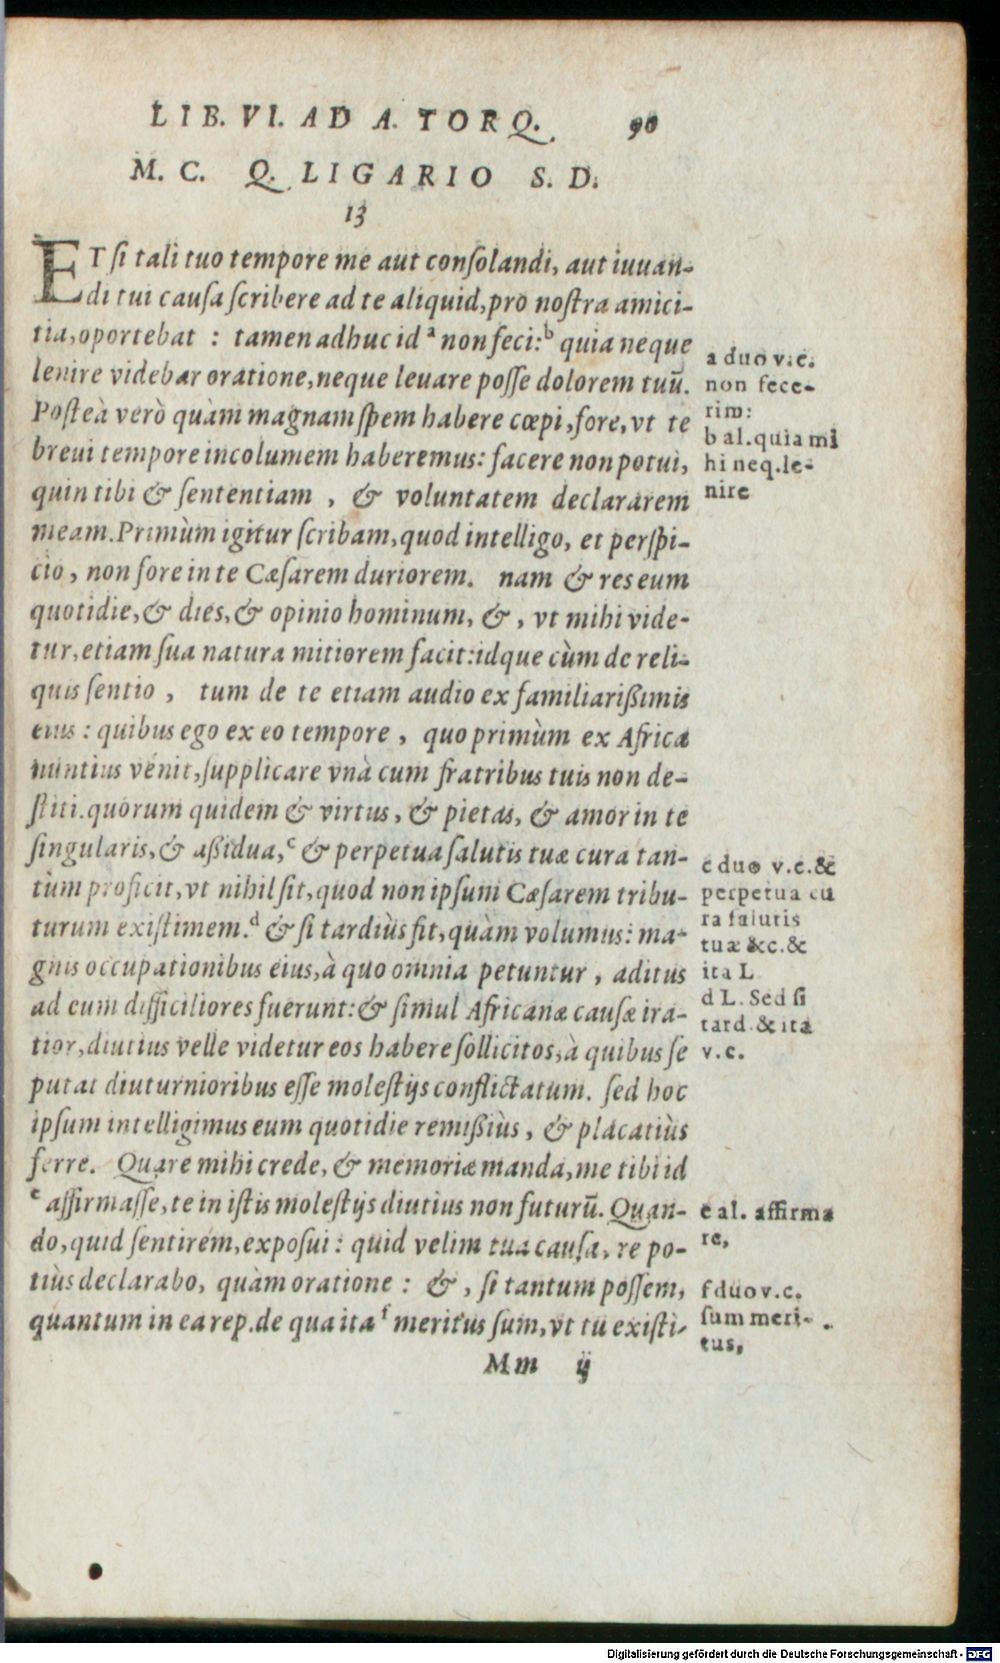 LIB. VI. AD A. TORQ. 90
M. C. Q. LIGARIO S. D.
13
ET si tali tuo tempore me aut consolandi, aut iuuan-
di tui causa scribere ad te aliquid, pro nostra amici-
tia, oportebat : tamen adhuc id a non feci: b quia neque
lenire videbar oratione, neque leuare posse dolorem tuū.
Posteà verò quàm magnam spem habere cœpi, fore, vt te
breui tempore incolumem haberemus: facere non potui,
quin tibi & sententiam , & voluntatem declararem
meam. Primùm igitur scribam, quod intelligo, et perspi-
cio, non fore in te Cæsarem duriorem. nam & res eum
quotidie, & dies, & opinio hominum, &, vt mihi vide-
tur, etiam sua natura mitiorem facit: idque cùm de reli-
quis sentio , tum de te etiam audio ex familiarißimis
eius : quibus ego ex eo tempore , quo primùm ex Africa
nuntius venit, supplicare vnà cum fratribus tuis non de-
stiti. quorum quidem & virtus, & pietas, & amor in te
singularis, & aßidua, c & perpetua salutis tuæ cura tan-
tùm proficit, vt nihil sit, quod non ipsum Cæsarem tribu-
turum existimem. d & si tardiùs fit, quàm volumus: ma-
gnis occupationibus eius, à quo omnia petuntur , aditus
ad eum difficiliores fuerunt: & simul Africanæ causæ ira-
tior, diutius velle videtur eos habere sollicitos, à quibus se
putat diuturnioribus esse molestijs conflictatum. sed hoc
ipsum intelligimus eum quotidie remißiùs, & placatiùs
ferre. Quare mihi crede, & memoriæ manda, me tibi id
e affirmasse, te in istis molestijs diutius non futurū. Quan-
do, quid sentirem, exposui : quid velim tua causa, re po-
tiùs declarabo, quàm oratione : &, si tantum possem,
quantum in ea rep. de qua ita f meritus sum, vt tu existi-
Mm ij
a duo v.c.
non fece-
rim:
b al. quia mi
hi neq. le-
nire
c duo v.c. &
perpetua cu
ra salutis
tuæ &c. &
ita L
d L. Sed si
tard. & ita
v.c.
e al. affirma
re,
f duo v.c.
sum meri-
tus,
Digitalisierung gefördert durch die Deutsche Forschungsgemeinschaft - DFG